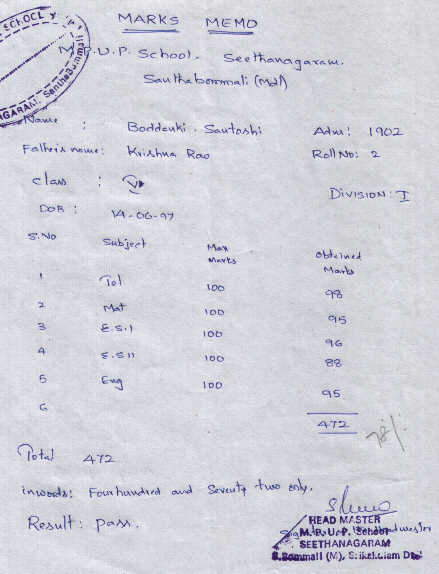 MARKS MEMO
M.P.U.P. School. Seethanagaram.
Santhabommali (Mdl)
Name : Boddanki. Santoshi Adm: 1902
Father's name: Krishna Rao Roll No: 2
class : V
DIVISION: I
DOB : 14-06-97
S.No Subject Max Marks Obtained Marks
1 Tel 100 98
2 Mat 100 95
3 E.S.I 100 96
4 E.S II 100 88
5 Eng 100 95
6
472
Total 472
inwords: Fourhundred and Seventy two only.
Result: pass.
HEAD MASTER
M.P.U.P. School
SEETHANAGARAM
S.Bommali (M), Srikakulam Dt